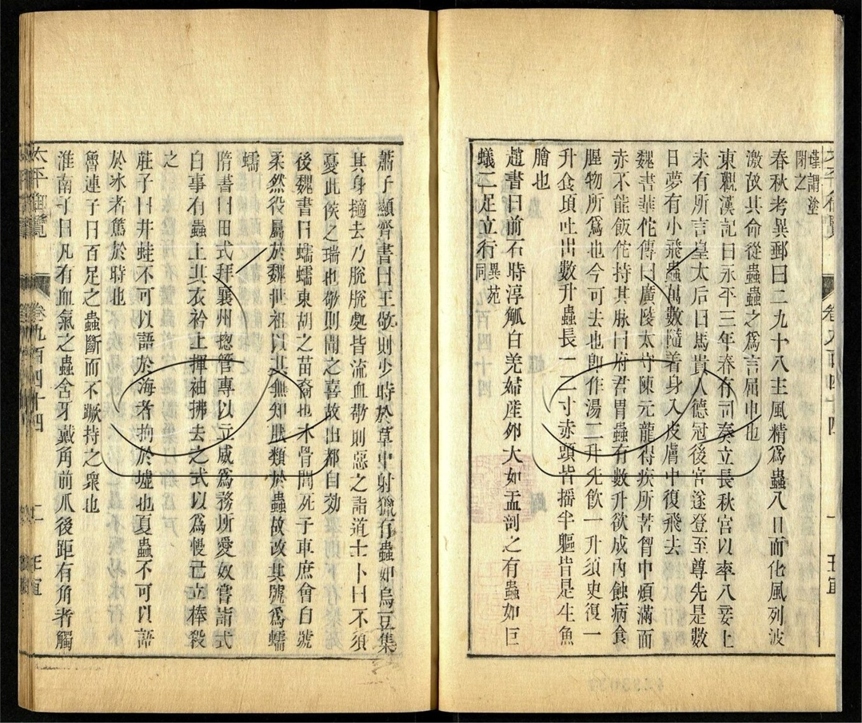 閉之
春秋考異郵曰二九十八主風精爲蟲八日而化風列波
激故其命從蟲蟲之爲言屈中也
東觀漢記曰永平三年春有司奏立長秋宮以率八妾上
未有所言皇太后曰馬貴人德冠後宮遂登至尊先是數
日夢有小飛蟲萬數隨着身入皮膚中復飛去
魏書華佗傳曰廣陵太守陳元龍得疾所苦胷中煩滿面
赤不能飯佗持其脉曰府君胃蟲有數升欲成內蝕病食
腥物所爲也今可去也卽作湯二升先飲一升須臾復一
升食頃吐出數升蟲長一二寸赤頭皆搖半軀皆是生魚
膾也
趙書曰前石時淳觚白羌婦產卵大如盂剖之有蟲如巨
蟻二足立行異苑同
蕭子顯齊書曰王敬則少時於草中射獵有蟲如烏豆集
其身擿去乃脫脫處皆流血敬則惡之詣道士卜曰不須
憂此侯之瑞也敬則聞之喜故出都自効
後魏書曰蠕蠕東胡之苗裔也木骨閭死子車庶會自號
柔然役屬於魏世祖以其無知狀類於蟲故改其號爲蠕
蠕
隋書曰田式拜襄州摠管專以立威爲務所愛奴嘗詣式
白事有蟲上其衣衿上揮袖拂去之式以爲慢己立棒殺
之
莊子曰井蛙不可以語於海者拘於墟也夏蟲不可以語
於冰者篤於時也
魯連子曰百足之蟲斷而不蹶持之衆也
淮南子曰凡有血氣之蟲含牙戴角前爪後距有角者觸
太平御覽 卷九百四十四 二